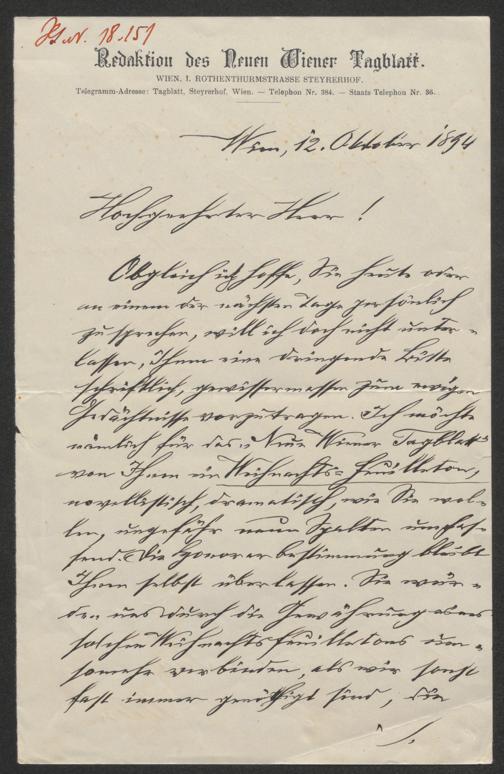 J. N. 18.151
Redaktion des Neuen Wiener Tagblatt.
WIEN, I. ROTHENTHURMSTRASSE STEYRERHOF.
Telegramm-Adresse: Tagblatt, Steyrerhof, Wien. — Telephon Nr. 384. — Staats Telephon Nr. 36.
Wien, 12. Oktober 1894
Hochgeehrter Herr!
Obgleich ich hoffe, Sie heute oder
an einem der nächsten Tage persönlich
zu sprechen, will ich doch nicht unter-
lassen, Ihnen eine dringende Bitte
schriftlich, gewissermassen zum ewigen
Gedächtnisse vorzutragen. Ich möchte
nämlich für das „Neue Wiener Tagblatt“
von Ihnen ein Weihnachts-Feuilleton,
novellistisch, dramatisch, wie Sie wol-
len, ungefähr neun Spalten umfas-
send. Die Honorarbestimmung bleibt
Ihnen selbst überlassen. Sie wür-
den uns durch die Gewährung eines
solchen Weihnachtsfeuilletons um-
somehr verbinden, als wir sonst
fast immer genöthigt sind, die